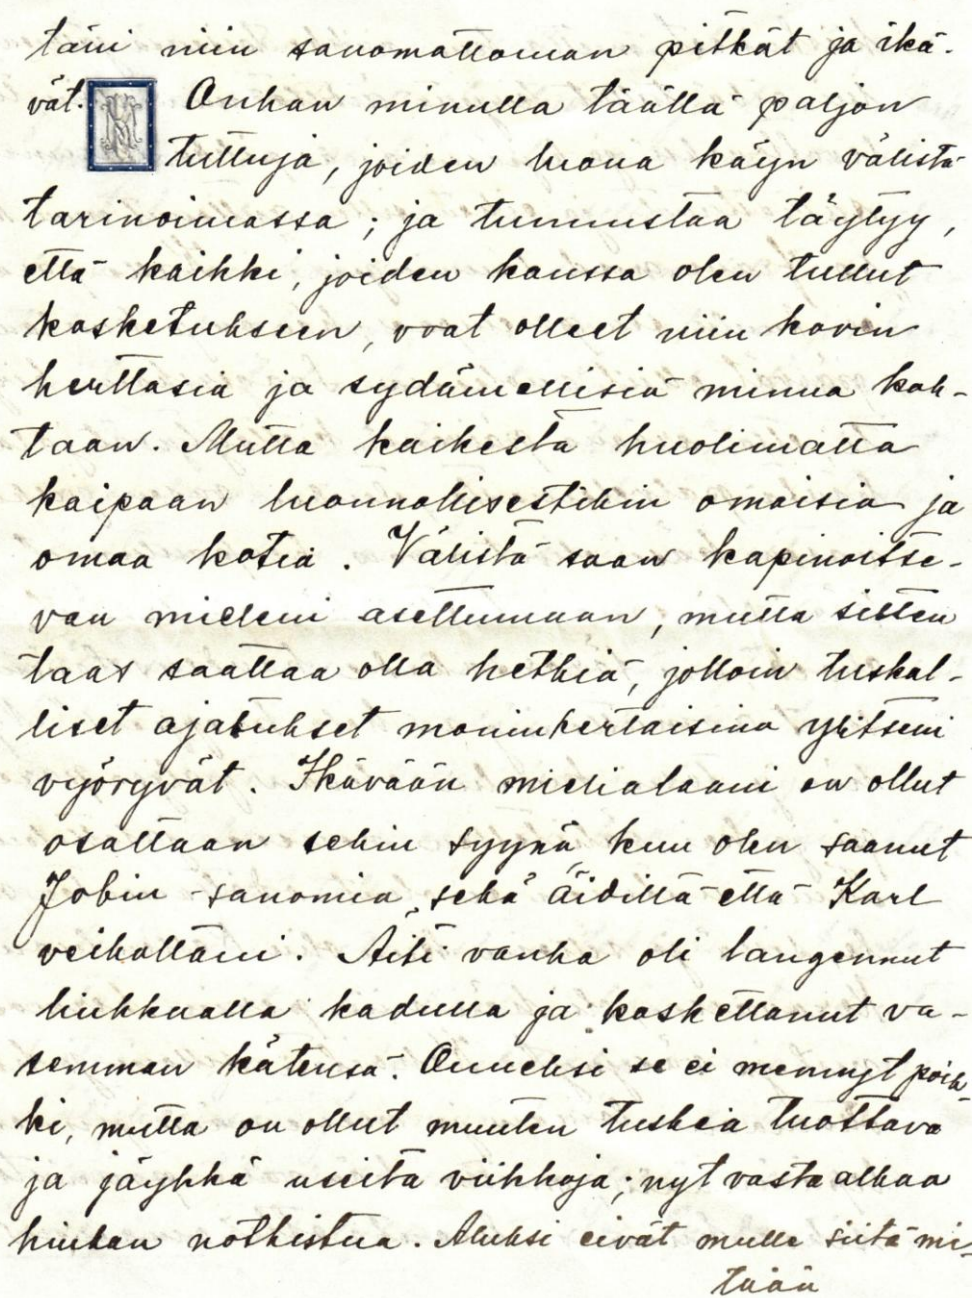 täni niin sanomattoman pitkät ja ikä-
vät. Onhan minulla täällä paljon
tuttuja, joiden luona käyn välistä
tarinoimassa; ja tunnustaa täytyy,
että kaikki, joiden kanssa olen tullut
kosketukseen, ovat olleet niin kovin
herttasia ja sydämellisiä minua koh-
taan. Mutta kaikesta huolimatta
kaipaan luonnollisestikin omaisia ja
omaa kotia. Välistä saan kapinoitse-
van mieleni asettumaan, mutta sitten
taas saattaa olla hetkiä, jolloin tuskal-
liset ajatukset moninkertaisina ylitseni
vyöryvät. Ikävään mielialaani on ollut
osaltaan sekin syynä kun olen saanut
Jobin-sanomia sekä äidiltä että Karl
veikoltani. Äiti vanha oli langennut
liukkaalla kadulla ja koskettanut va-
semman kätensä. Onneksi se ei mennyt poik-
ki, mutta on ollut muuten tuskia tuottava
ja jäykkä useita viikkoja; nyt vasta alkaa
hiukan notkistua. Aluksi eivät mulle siitä mi-
tään